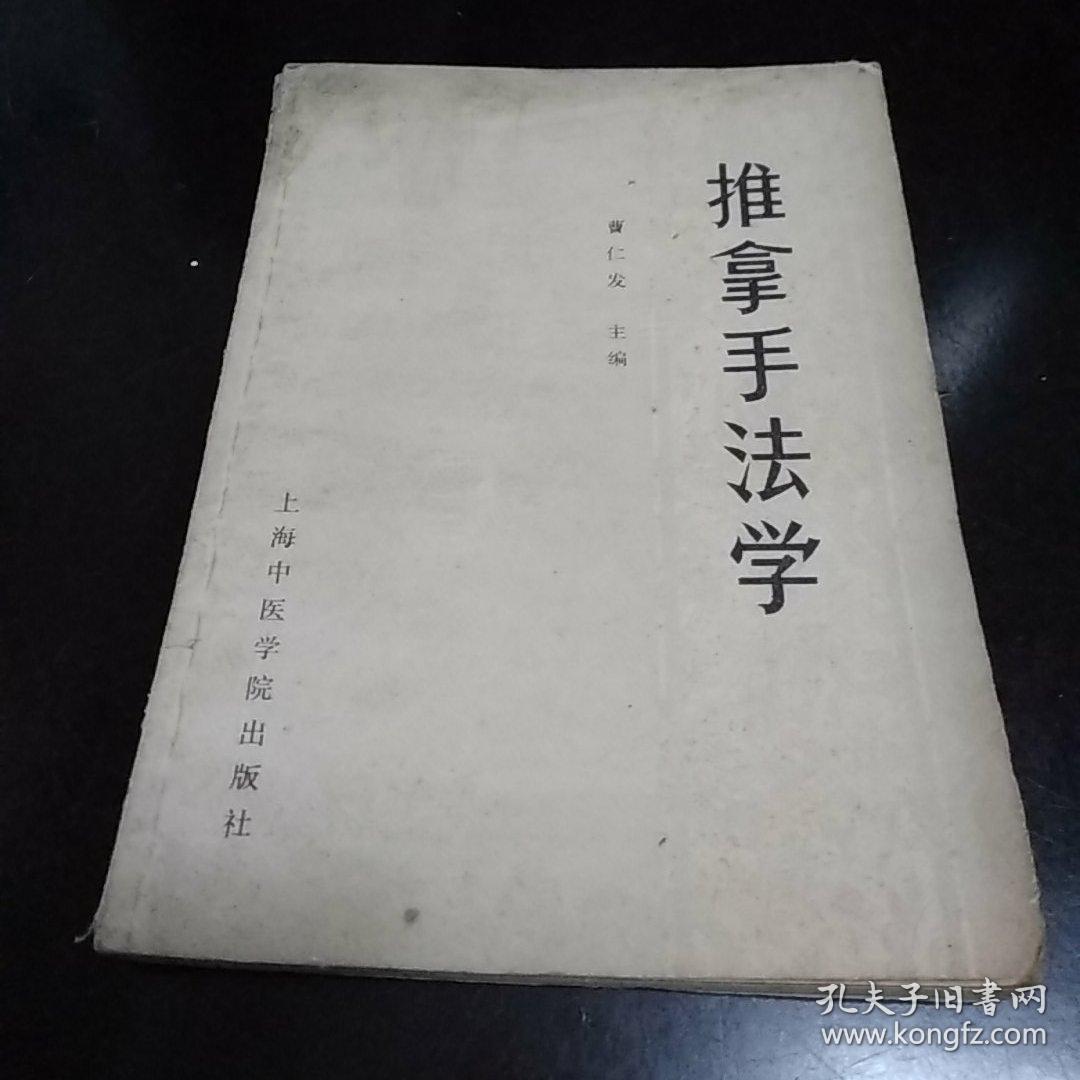 推拿手法学
曹仁发 主编
上海中医学院出版社
孔夫子旧书网
www.kongfz.com